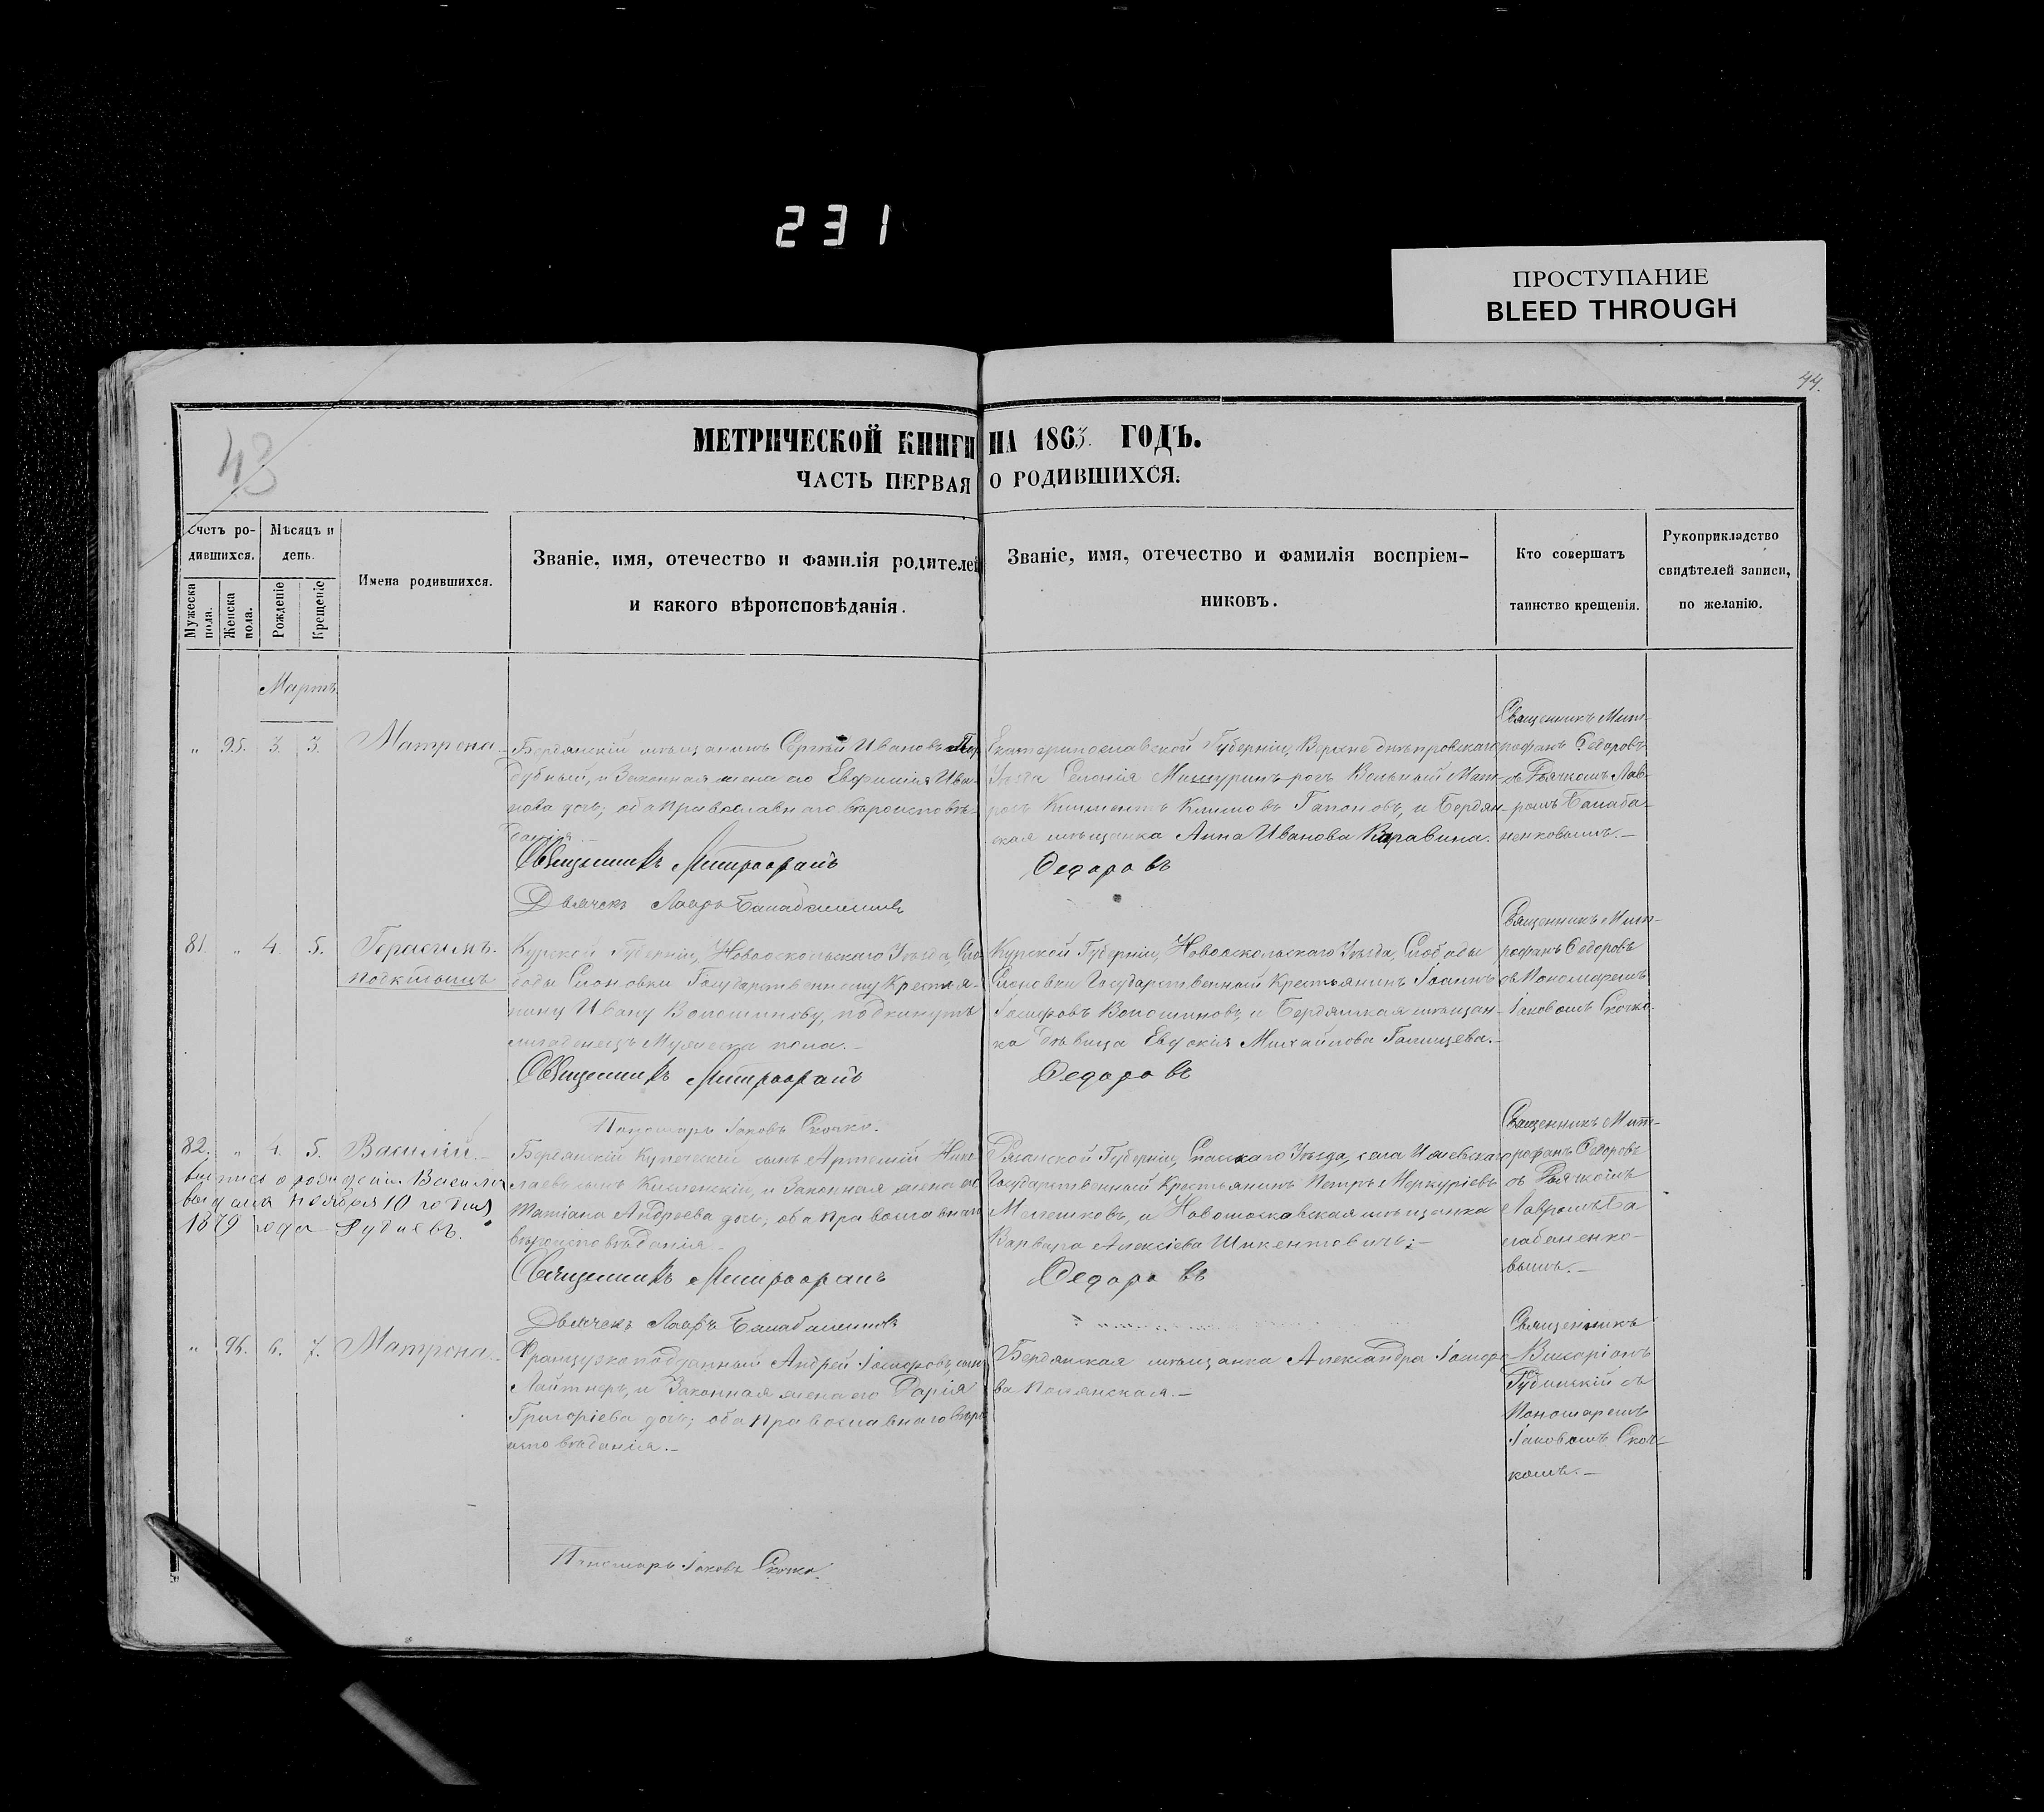 231
ПРОСТУПАНИЕ
BLEED THROUGH
44.
43
МЕТРИЧЕСКОЙ КНИГИ НА 1863. ГОДЪ.
ЧАСТЬ ПЕРВАЯ О РОДИВШИХСЯ.
Счетъ ро-
дившихся.
Мужеска пола.
Женска пола.
Мѣсяцъ и
день.
Рожденіе
Крещеніе
Имена родившихся.
Званіе, имя, отечество и фамилія родителей
и какого вѣроисповѣданія.
Званіе, имя, отечество и фамилія воспріем-
никовъ.
Кто совершатъ
таинство крещенія.
Рукоприкладство
свидѣтелей записи,
по желанію.
Мартъ
„ 95. 3. 3. Матрона
Бердянскій мѣщанинъ Сергѣй Ивановъ
дубный, и Законная жена его Евфимія Ива-
нова дочь; оба Православнаго вѣроисповѣ-
данія.
Священникъ Митрофанъ Федоровъ
Дьячекъ Лавръ Балабаненковъ
Екатеринославской Губерніи, Верхнеднѣпровскаго
Уѣзда Селенія Мишуринъ-рогъ Вольный Мат-
росъ Климентъ Климовъ Гапоновъ, и Бердян-
ская мѣщанка Анна Иванова Каравина.
Священникъ Мит-
рофанъ Федоровъ
съ Дьячкомъ Лав-
ромъ Балаба-
ненковымъ.—
81. „ 4. 5. Герасимъ.
подкидышъ
Курской Губерніи, Новооскольскаго Уѣзда, Сло
боды Слоновки Государственному Крестья-
нину Ивану Волошинову, подкинутъ
младенецъ Мужеска пола.—
Священникъ Митрофанъ Федоровъ
Пономарь Іаковъ Скочко.
Курской Губерніи, Новооскольскаго Уѣзда, Слободы
Слоновки Государственный Крестьянинъ Іоаннъ
Волошиновъ, и Бердянская мѣщан-
ка дѣвица Евдокія Михайлова Галищева.—
Священникъ Мит-
рофанъ Федоровъ
съ Пономаремъ
Іаковомъ Скочко-
82. „ 4. 5. Василій.—
о рожденіи Василія
выдана Ноября 10 го дня
1879 года
Бердянскій Купеческій сынъ Артемій Нико-
лаевъ сынъ и Законная жена его
Татіана Андреева дочь; оба Православнаго
вѣроисповѣданія.—
Священникъ Митрофанъ Федоровъ
Дьячекъ Лавръ Балабаненковъ
Рязанской Губерніи, Спасскаго Уѣзда, села Ижевскаго
Государственный Крестьянинъ Петръ Меркуріевъ
Мелешковъ, и Новомосковская мѣщанка
Варвара Алексіева Шикентовичъ;—
Священникъ Мит-
рофанъ Федоровъ
съ Дьячкомъ
Лавромъ Ба
лабаненко-
вымъ.—
„ 96. 6. 7. Матрона.
Французскоподданный Андрей сынъ
Лайтнеръ, и Законная жена его Дарія
Григоріева дочь; оба Православнаго вѣро
исповѣданія.—
Пономарь Іаковъ Скочко.
Бердянская мѣщанка Александра
ва Полянская.—
Священникъ
Виссаріонъ
съ
Пономаремъ
Іаковомъ Скоч-
комъ.—